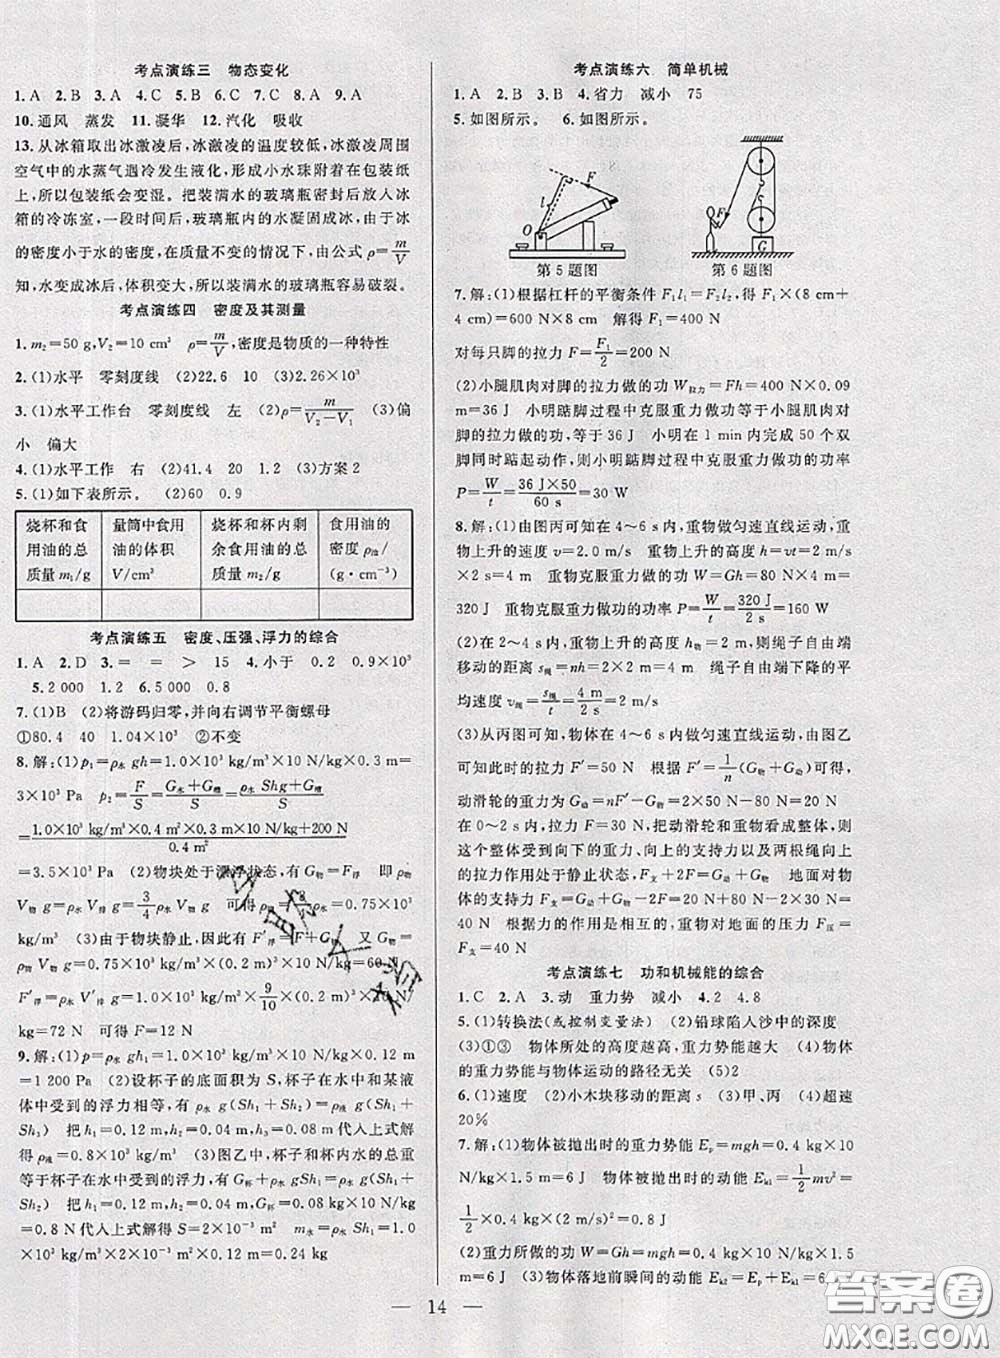 考点演练三　物态变化
1.A　2.B　3.A　4.C　5.B　6.C　7.B　8.A　9.A
10.通风　蒸发　11.凝华　12.汽化　吸收
13.从冰箱取出冰激凌后,冰激凌的温度较低,冰激凌周围
空气中的水蒸气遇冷发生液化,形成小水珠附着在包装纸
上,所以包装纸会变湿。把装满水的玻璃瓶密封后放入冰
箱的冷冻室,一段时间后,玻璃瓶内的水凝固成冰,由于冰
的密度小于水的密度,在质量不变的情况下,由公式 ρ=m/V
知,水变成冰后,体积变大,所以装满水的玻璃瓶容易破裂。
考点演练四　密度及其测量
1.m₂=50 g,V₂=10 cm³　ρ=m/V,密度是物质的一种特性
2.(1)水平　零刻度线　(2)22.6　10　(3)2.26×10³
3.(1)水平工作台　零刻度线　左　(2)ρ=m/(V₂−V₁)　(3)偏
小　偏大
4.(1)水平工作　右　(2)41.4　20　1.2　(3)方案2
5.(1)如下表所示。　(2)60　0.9
烧杯和食用油的总质量 m₁/g　量筒中食用油的体积 V/cm³　烧杯和杯内剩余食用油的总质量 m₂/g　食用油的密度 ρ油/(g·cm⁻³)
考点演练五　密度、压强、浮力的综合
1.A　2.D　3.=　=　>　15　4.小于　0.2　0.9×10³
5.2 000　1.2　6.5 000　0.8
7.(1)B　(2)将游码归零,并向右调节平衡螺母
①80.4　40　1.04×10³　②不变
8.解:(1)p₁=ρ水 gh=1.0×10³ kg/m³×10 N/kg×0.3 m=
3×10³ Pa　p₂=F/S=(G水+G槽)/S=(ρ水Shg+G槽)/S
=(1.0×10³ kg/m³×0.4 m²×0.3 m×10 N/kg+200 N)/0.4 m²
=3.5×10³ Pa　(2)物块处于漂浮状态,有 G物=F浮　即 ρ物
V物 g=ρ水 3/4 V物 g　ρ物=3/4 ρ水=1.0×10³×3/4=0.75×10³
kg/m³　(3)由于物块静止,因此有 F′浮=F+G物　又 G物=
ρ物V物 g=0.75×10³ kg/m³×8×10⁻³ m³×10 N/kg=60 N
F′浮=ρ水 V′浮 g=1.0×10³ kg/m³×9/10×8×10⁻³ m³×10 N/
kg=72 N　可得 F=12 N
9.解:(1)p=ρ水 gh₁=1.0×10³ kg/m³×10 N/kg×0.12 m
=1 200 Pa　(2)设杯子的底面积为 S,杯子在水中和某液
体中受到的浮力相等,有 ρ水 g(Sh₁+Sh₂)=ρ液 g(Sh₁+
Sh₃)　把 h₁=0.12 m,h₂=0.04 m,h₃=0.08 m代入上式解
得 ρ液=0.8×10³ kg/m³　(3)图乙中,杯子和杯内水的总重
等于杯子在水中受到的浮力,G杯+ρ水 gSh₂=ρ水 g(Sh₁+
Sh₂)　把 h₁=0.12 m,h₂=0.04 m,G杯=0.08 kg×10 N/kg
=0.8 N代入上式解得 S=2×10⁻³ m²　m水=ρ水 Sh₁=1.0
×10³ kg/m³×2×10⁻³ m²×0.12 m=0.24 kg
考点演练六　简单机械
1.A　2.B　3.B　4.省力　减小　75
5.如图所示。　6.如图所示。
F
l
O
第5题图
G
第6题图
7.解:(1)根据杠杆的平衡条件 F₁l₁=F₂l₂,取 F₁×(8 cm+
4 cm)=600 N×8 cm　解得 F₁=400 N
对每只脚的拉力 F=F₁/2=200 N
(2)小腿肌肉对脚的拉力做的功 W拉力=Fh=400 N×0.09
m=36 J　小明踮脚过程中克服重力做功等于小腿肌肉对
脚的拉力做的功,等于 36 J　小明在 1 min内完成 50 个双
脚同时踮起动作,则小明踮脚过程中克服重力做功的功率
P=W/t=36 J×50/60 s=30 W
8.解:(1)由图丙可知在 4～6 s内,重物做匀速直线运动,
重物上升的速度 v=2.0 m/s　重物上升的高度 h=vt=2 m/
s×2 s=4 m　重物克服重力做的功 W=Gh=80 N×4 m=
320 J　重物克服重力做功的功率 P=W/t=320 J/2 s=160 W
(2)在 2～4 s内,重物上升的高度 h物=2 m,则绳子自由端
移动的距离 s绳=nh=2×2 m=4 m　绳子自由端下降的平
均速度 v绳=s绳/t=4 m/2 s=2 m/s
(3)从丙图可知,物体在 4～6 s内做匀速直线运动,由图乙
可知此时的拉力 F′=50 N　根据 F′=1/n(G物+G动)可得,
动滑轮的重力为 G动=nF′−G物=2×50 N−80 N=20 N
在 0～2 s内,拉力 F=30 N,将动滑轮和重物看成整体,则
这个整体受到向下的重力、向上的支持力以及两根绳向上
的拉力作用处于静止状态,F支+2F=G动+G物　地面对物
体的支持力 F支=G动+G物−2F=20 N+80 N−2×30 N=
40 N　根据力的作用是相互的,重物对地面的压力 F压=
F支=40 N
考点演练七　功和机械能的综合
1.C　2.A　3.动　重力势　减小　4.2　4.8
5.(1)转换法(或控制变量法)　(2)铅球陷入沙中的深度
(3)①③　物体所处的高度越高,重力势能越大　(4)物体
的重力势能与物体运动的路径无关　(5)2
6.(1)速度　(2)小木块移动的距离s　(3)甲、丙　(4)超速
20%
7.解:(1)物体被抛出时的重力势能 Eₚ=mgh=0.4 kg×10
N/kg×1.5 m=6 J　物体被抛出时的动能 Eₖ₁=1/2 mv²=
1/2×0.4 kg×(2 m/s)²=0.8 J
(2)重力所做的功 W=Gh=mgh=0.4 kg×10 N/kg×1.5
m=6 J　(3)物体落地前瞬间的动能 Eₖ₂=Eₚ+Eₖ₁=6.8 J
— 14 —
答案圈
MXQE.COM